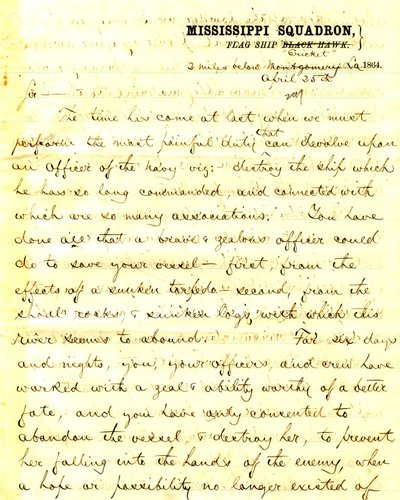 MISSISSIPPI SQUADRON,
FLAG SHIP BLACK HAWK.
"Cricket"
3 miles below Montgomery La 1864.
April 25th
Sir —
The time has come at last when we must
perform the most painful duty that can devolve upon
an officer of the navy viz: — destroy the ship which
he has so long commanded, and connected with
which are so many associations. You have
done all that a brave & zealous officer could
do to save your vessel — first, from the
effects of a sunken torpedo — second, from the
shoals rocks & sunken logs, with which this
river seems to abound. For six days
and nights, you, your officers, and crew have
worked with a zeal & ability worthy of a better
fate, and you have only consented to
abandon the vessel, & destroy her, to prevent
her falling into the hands of the enemy, when
a hope or possibility no longer existed of